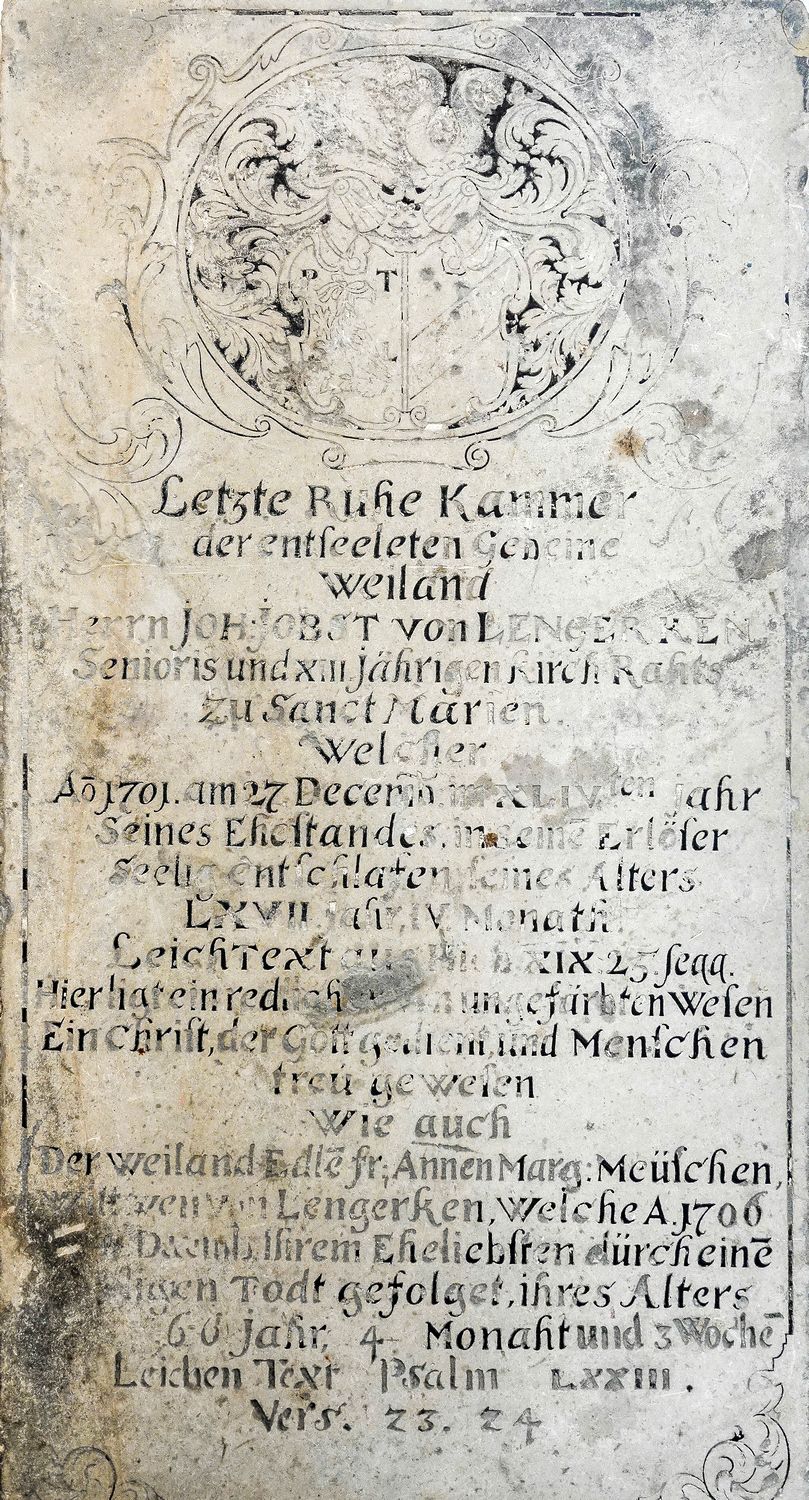 P T
L
Letzte Ruhe Kammer
der entseeleten Gebeine
weiland
Herrn JOH: JOBST von LENGERKEN
Senioris und XIII Jährigen Kirch Rahts
Zu Sanct Marien.
Welcher
Aō 1701. am 27 Decemb̄. im XLIV.ten jahr
Seines Ehestandes, in seinē Erlöser
Seelig entschlafen, seines Alters
LXVII. jahr, IV. Monath
Leich Text aus Hiob XIX 25 seqq.
Hier ligt ein redlich ungefärbten Wesen
Ein Christ, der Gott gedient, und Menschen
treu gewesen
Wie auch
Der weiland Edlē fr: Annen Marg: Meüschen,
Wittwen von Lengerken, Welche A. 1706
Decemb. Ihrem Eheliebsten dürch einē
Todt gefolget, ihres Alters
66 Jahr, 4 Monaht und 3 Wochē
Leichen Text Psalm LXXIII.
Vers. 23. 24